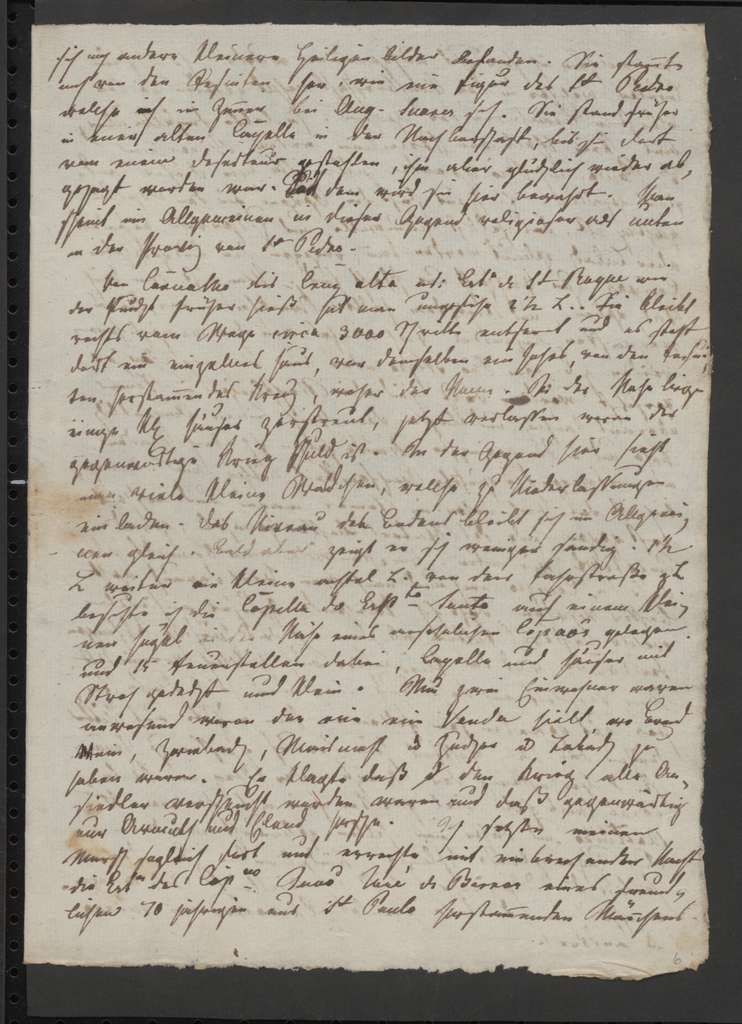 sich noch andere kleinere Heiligenbilder befanden. Sie stammte
noch von den Jesuiten her, wie eine Figur des St Pedro
welche ich im Zimmer bei Aug. Suares sah. Sie stand früher
in einer alten Capelle in der Nachbarschaft, bis sie dort
von einem Deserteur gestohlen, ihm aber glücklich wieder ab,
gejagt worden war. Seit dem wird sie hier bewahrt. Man
scheint im Allgemeinen in dieser Gegend religioser als unten
in der Provz von St Pedro.
Von bis Cruz alta od: Esta de St Roque wie
der Punkt früher hieß hat man ungefähr 2½ L.. Sie bleibt
rechts vom Wege circa 3000 Schritte entfernt und es steht
dort ein einzelnes Haus, vor demselben ein hohes, von den Jesui,
ten herstammendes Kreuz, woher der Name. In der Nähe liegen
einige Häuser zerstreut, jetzt verlassen woran der
gegenwärtige Krieg Schuld ist. In der Gegend hier sieht
man viele kleine Wäldchen, welche zu Niederlassungen
einladen. Das Niveau des Bodens bleibt sich im Allgemei,
nen gleich. Bald aber zeigt er sich weniger sandig. 1½
L weiter eine kleine L. von der Fahrstraße
besuchte ich die Capella do Espto Santo auf einem klei,
nen Hügel in der Nähe eines ansehnlichen Capaõs gelegen.
und 15 Feuerstellen dabei, Capelle und Häuser mit
Stroh gedeckt und klein. Nur zwei Einwohner waren
anwesend wovon der eine ein Venda hielt wo Brod
Wein, Zwieback, Mais Zucker & Taback zu
haben waren. Er klagte daß d den Krieg alle An,
siedler verscheucht worden wären und daß gegenwärtig
nur Armuth und Elend herrsche. Ich setzte meinen
Marsch sogleich fort und erreichte mit einbrechender Nacht
die Esta des Capno José de eines freund,
lichen 70 jährigen aus St Paulo herstammenden Mannes.
6